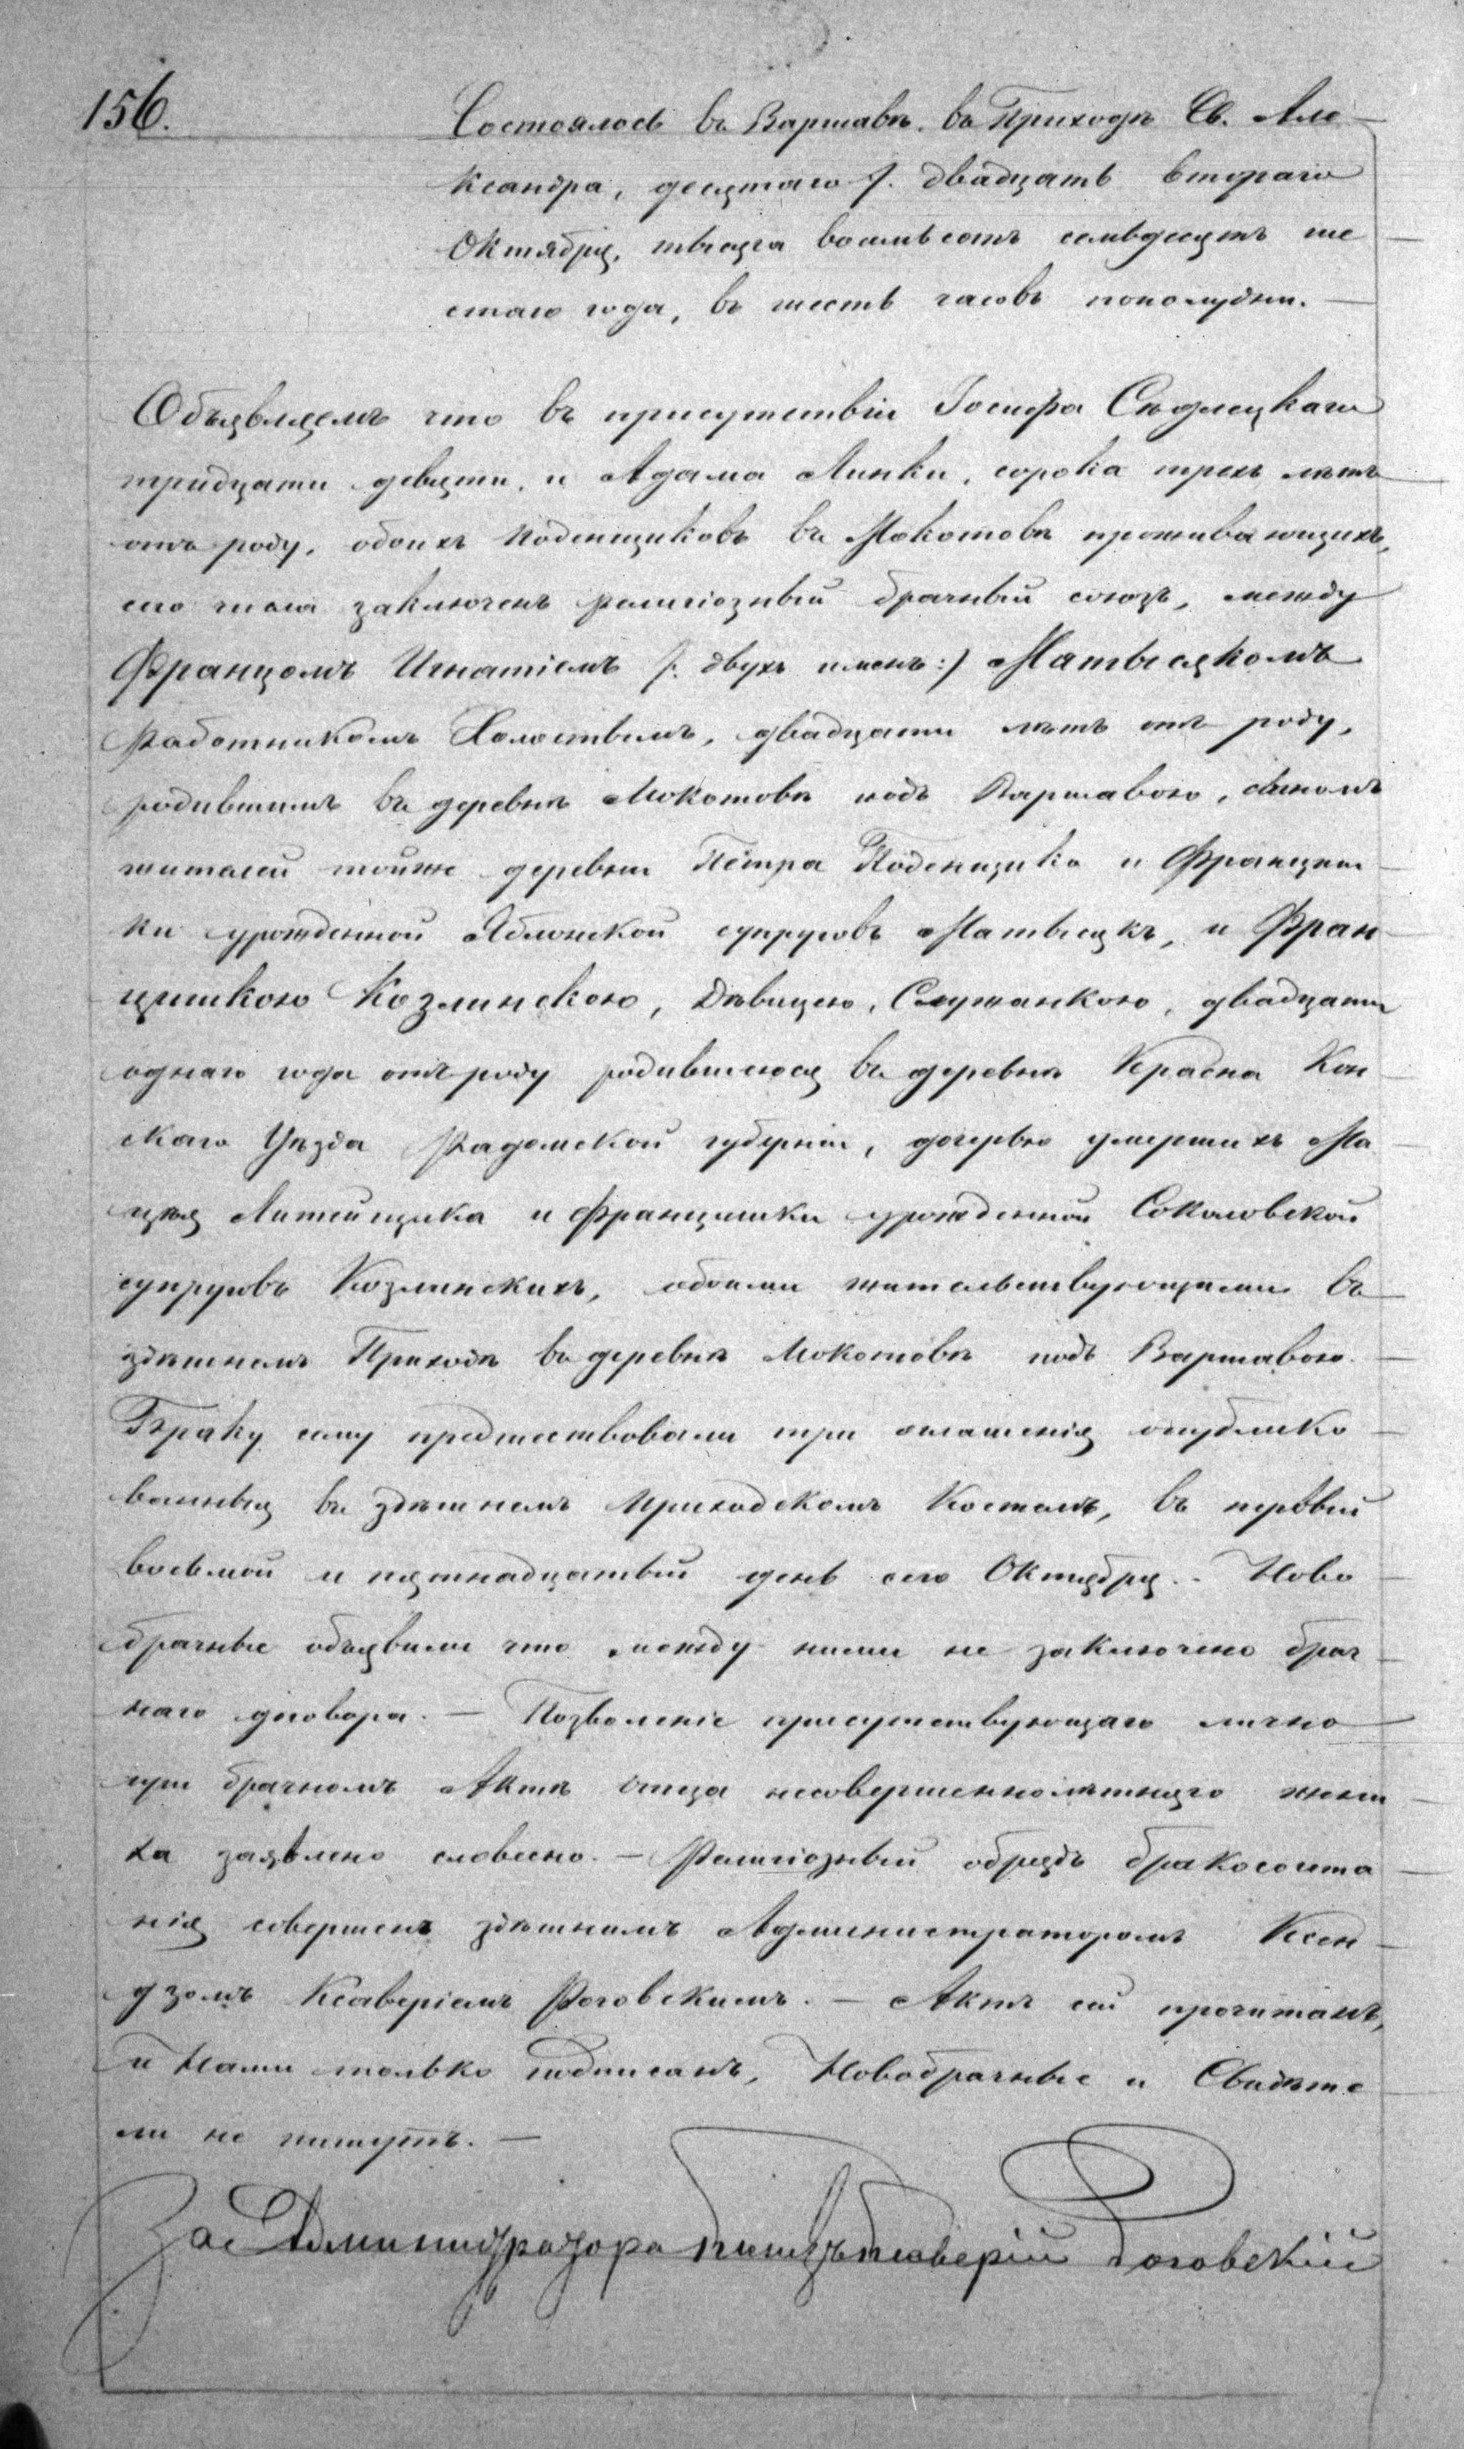 156.
Состоялось въ Варшавѣ, въ Приходѣ Св. Але
ксандра, десятаго /. двадцать втораго
Октября, тысяча восемьсотъ семьдесятъ ше
стаго года, въ шесть часовъ пополудни. —
Объявляемъ что въ присутствіи Іосифа Сѣдлецкаго
тридцати девяти, и Адама Липки, сорока трехъ лѣтъ
отъ роду, обоихъ поденщиковъ въ Мокотовѣ проживающихъ,
сего числа заключенъ религіозный брачный союзъ, между
Францомъ Игнатіемъ /: двухъ именъ :/ Матысякомъ
Работникомъ Холостымъ, двадцати лѣтъ отъ роду,
родившимъ въ деревнѣ Мокотовѣ подъ Варшавою, сыномъ
жителей тойже деревни Петра Поденщика и Францишки
ки урожденной Яблонской супруговъ Матысякъ, и Фран
цишкою Козлинскою, Дѣвицею, Служанкою, двадцати
однаго года отъ роду родившеюся въ деревнѣ Красна Кон
скаго Уѣзда Радомской губерніи, дочерью умершихъ Ма
цѣя Литейщика и Францишки урожденной Соколовской
супруговъ Козлинскихъ, обоими жительствующими въ
здѣшнемъ Приходѣ въ деревнѣ Мокотовѣ подъ Варшавою. —
Браку сему предшествовали три оглашенія опублико
ванныя въ здѣшнемъ приходскомъ Костелѣ, въ первый
восьмой и пятнадцатый день сего Октября. - Ново
брачные объявили что между ними не заключено брач
наго договора. — Позволеніе присутствующаго лично
при брачномъ Актѣ отца несовершеннолѣтняго жени
ха заявлено словесно. — Религіозный обрядъ бракосочета
нія совершенъ здѣшнимъ Администраторомъ Ксен
дзомъ Ксаверіемъ Роговскимъ. — Актъ сей прочитанъ,
и Нами только подписанъ, Новобрачные и Свидѣте
ли не пишутъ. —
За Администратора Ксаверій Роговскій